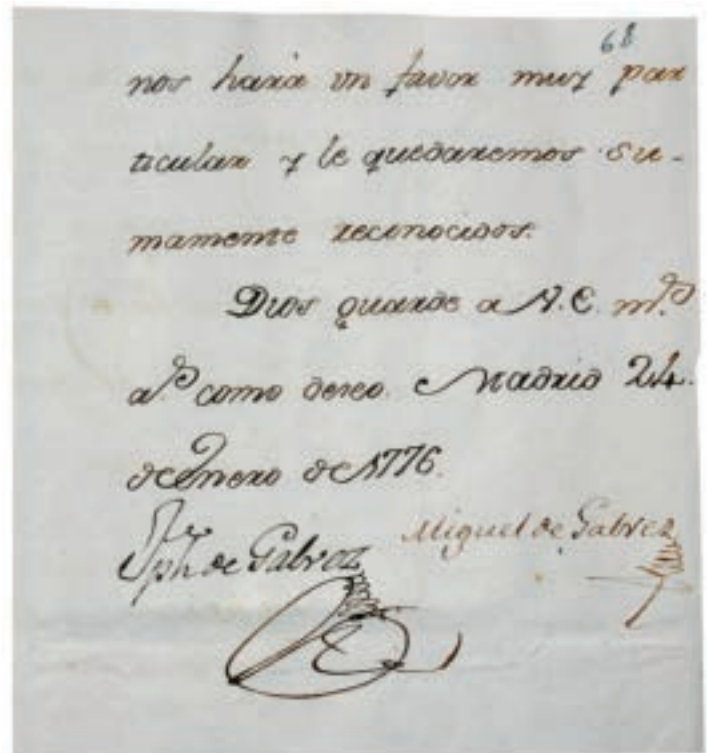 68
nos hará un favor muy par
ticular y le quedaremos su-
mamente reconocidos.
Dios guarde a V.E. m.s
a.s como deseo. Madrid 24.
de Enero de 1776.
Jph de Galvez
Miguel de Galvez